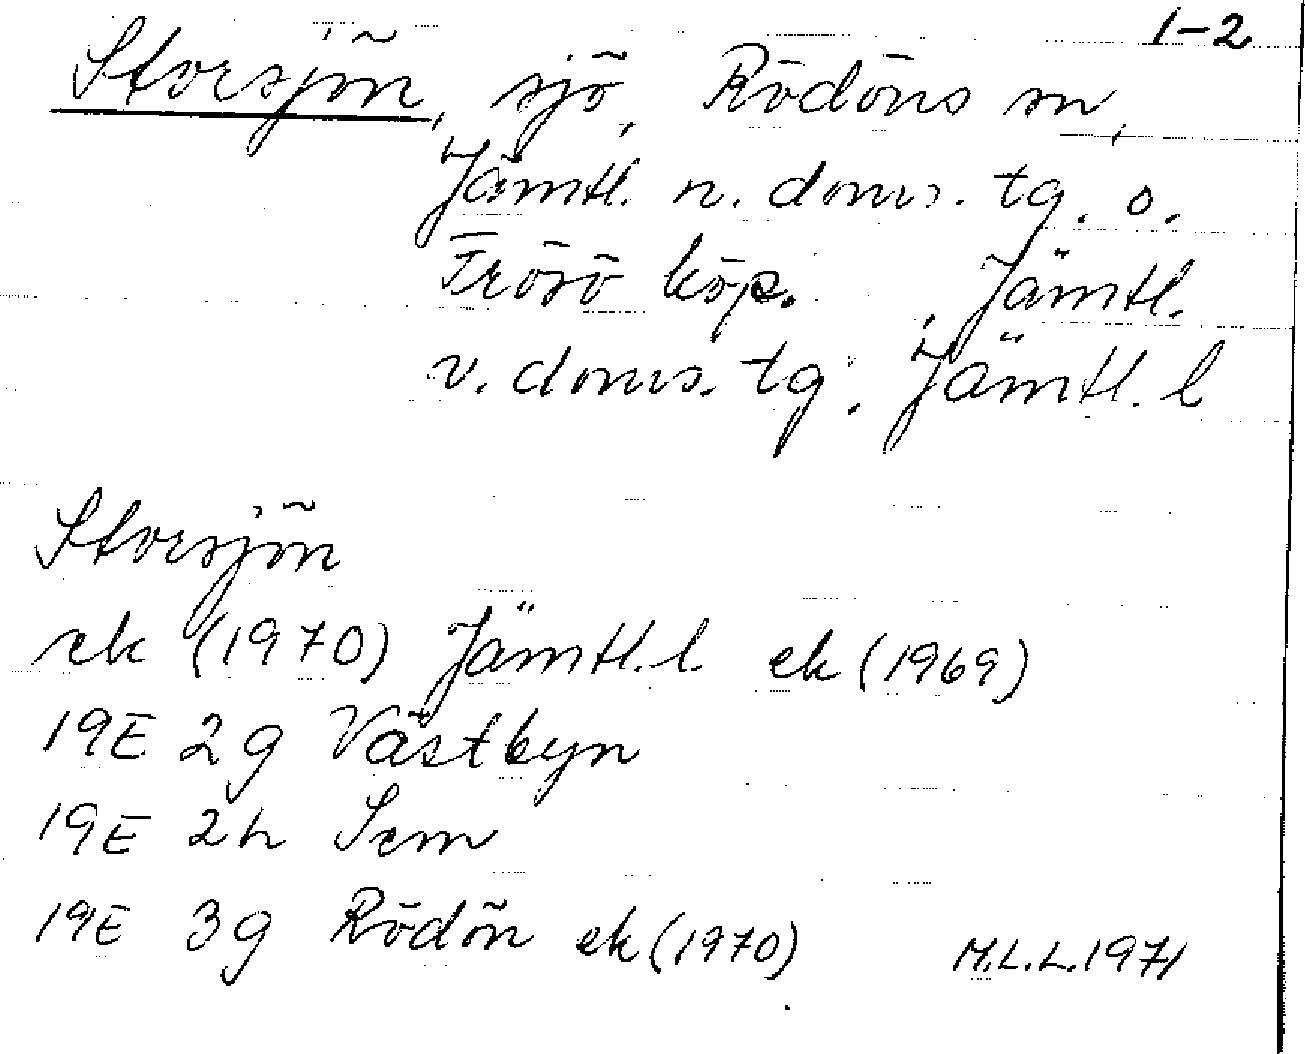 1-2
Storsjön, sjö, Rödöns sn,
Jämtl. n. doms. tg. o.
Frösö köp. , Jämtl.
v. doms. tg, Jämtl. l
Storsjön
ek (1970) Jämtl. l. ek (1969)
19E 2g Västbyn
19E 2h Sem
19E 3g Rödön ek (1970) M.L.L. 1971